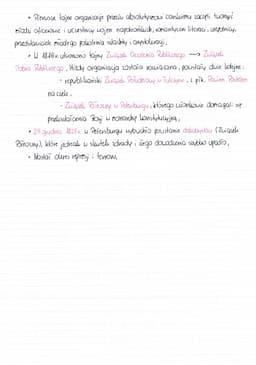 • Pierwsze tajne organizacje przeciw absolutyzmowi carskiemu zaczęli tworzyć
młodzi oficerowie i uczestnicy wojen napoleońskich, romantyczni literaci, urzędnicy,
przedstawiciele młodego pokolenia szlachty i arystokracji.
• W 1816r utworzono tajny Związek Ocalenia Publicznego → Związek
Dobra Publicznego. Kiedy organizacja została rozwiązana, powstały dwie kolejne:
- republikański Związek Południowy w Tulczynie, z płk. Pawłem Pestelem
na czele.
- Związek Północny w Petersburgu, którego członkowie domagali się
przekształcenia Rosji w monarchię konstytucyjną.
• 26 grudnia 1825r. w Petersburgu wybuchło powstanie dekabrystów (Związek
Północny), które jednak w skutek zdrady i złego dowodzenia szybko upadło.
• Nastał okres represji i terroru.